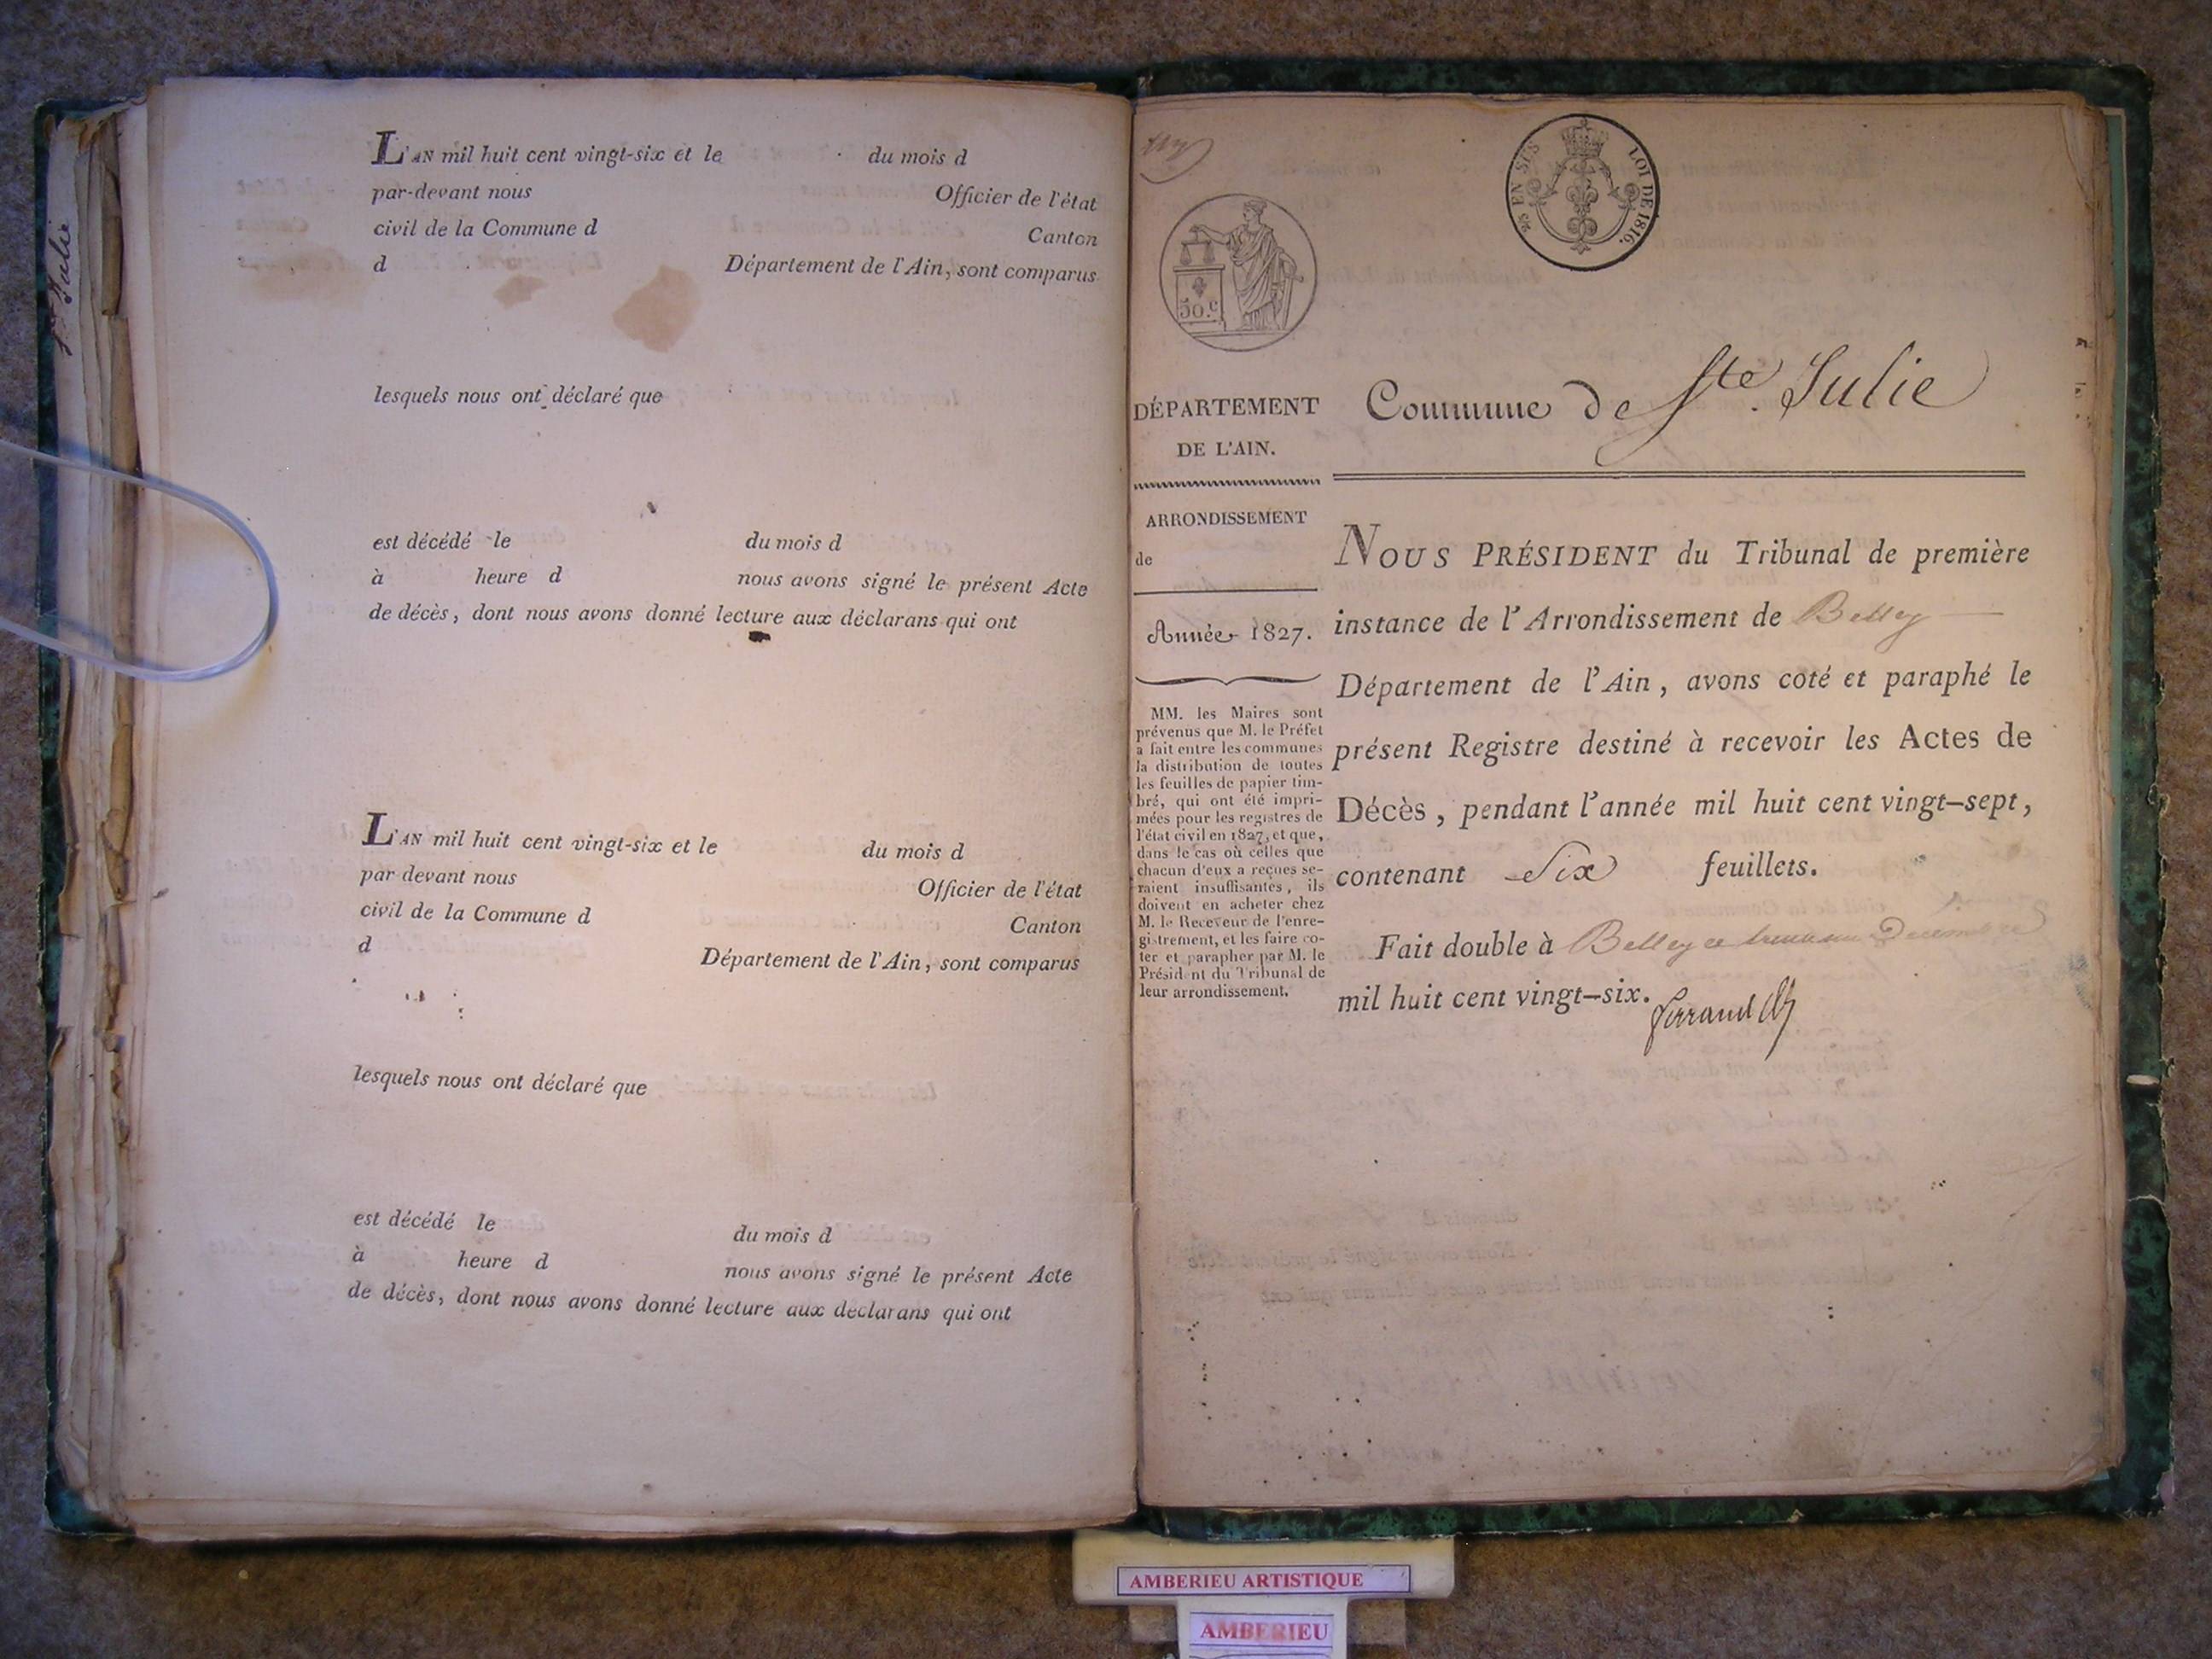 Ste Julie
L'AN mil huit cent vingt-six et le du mois d
par-devant nous Officier de l'état
civil de la Commune d Canton
d Département de l'Ain, sont comparus
lesquels nous ont déclaré que
est décédé le du mois d
à heure d nous avons signé le présent Acte
de décès, dont nous avons donné lecture aux déclarans qui ont
L'AN mil huit cent vingt-six et le du mois d
par-devant nous Officier de l'état
civil de la Commune d Canton
d Département de l'Ain, sont comparus
lesquels nous ont déclaré que
est décédé le du mois d
à heure d nous avons signé le présent Acte
de décès, dont nous avons donné lecture aux déclarans qui ont
EN SUS LOI DE 1816.
50.c
DÉPARTEMENT
DE L'AIN.
ARRONDISSEMENT
de
Année 1827.
MM. les Maires sont
prévenus que M. le Préfet
a fait entre les communes
la distribution de toutes
les feuilles de papier tim-
bré, qui ont été impri-
mées pour les registres de
l'état civil en 1827, et que,
dans le cas où celles que
chacun d'eux a reçues se-
raient insuffisantes, ils
doivent en acheter chez
M. le Receveur de l'enre-
gistrement, et les faire co-
ter et parapher par M. le
Président du Tribunal de
leur arrondissement.
Commune de Ste. Julie
NOUS PRÉSIDENT du Tribunal de première
instance de l'Arrondissement de Belley
Département de l'Ain, avons coté et paraphé le
présent Registre destiné à recevoir les Actes de
Décès, pendant l'année mil huit cent vingt-sept,
contenant Six feuillets.
Fait double à Belley ce Decembre
mil huit cent vingt-six.
AMBERIEU ARTISTIQUE
AMBERIEU